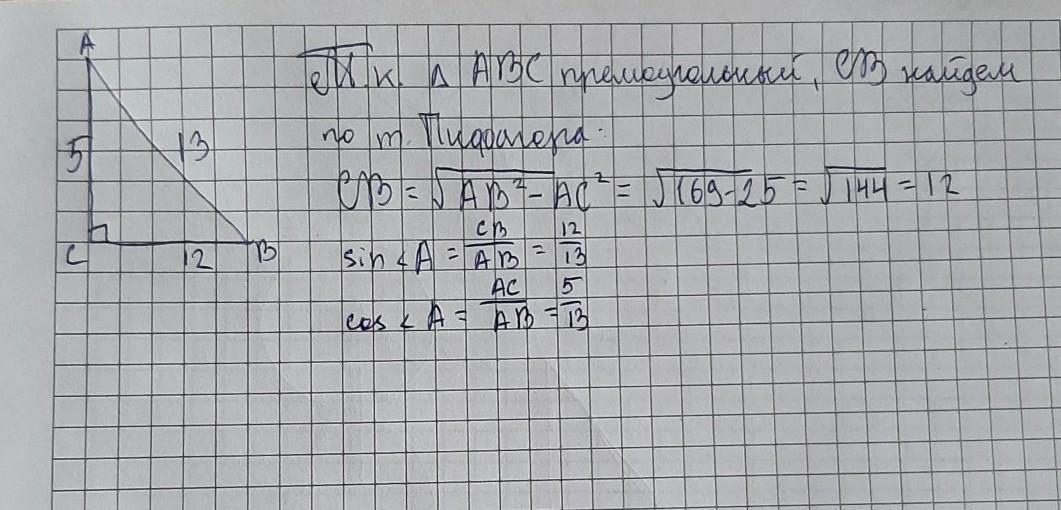 A
5
13
C
12
B
Т.к. Δ ABC прямоугольный, CB найдем
по т. Пифагора:
CB = √AB² - AC² = √169-25 = √144 = 12
sin ∠A = CB/AB = 12/13
cos ∠A = AC/AB = 5/13